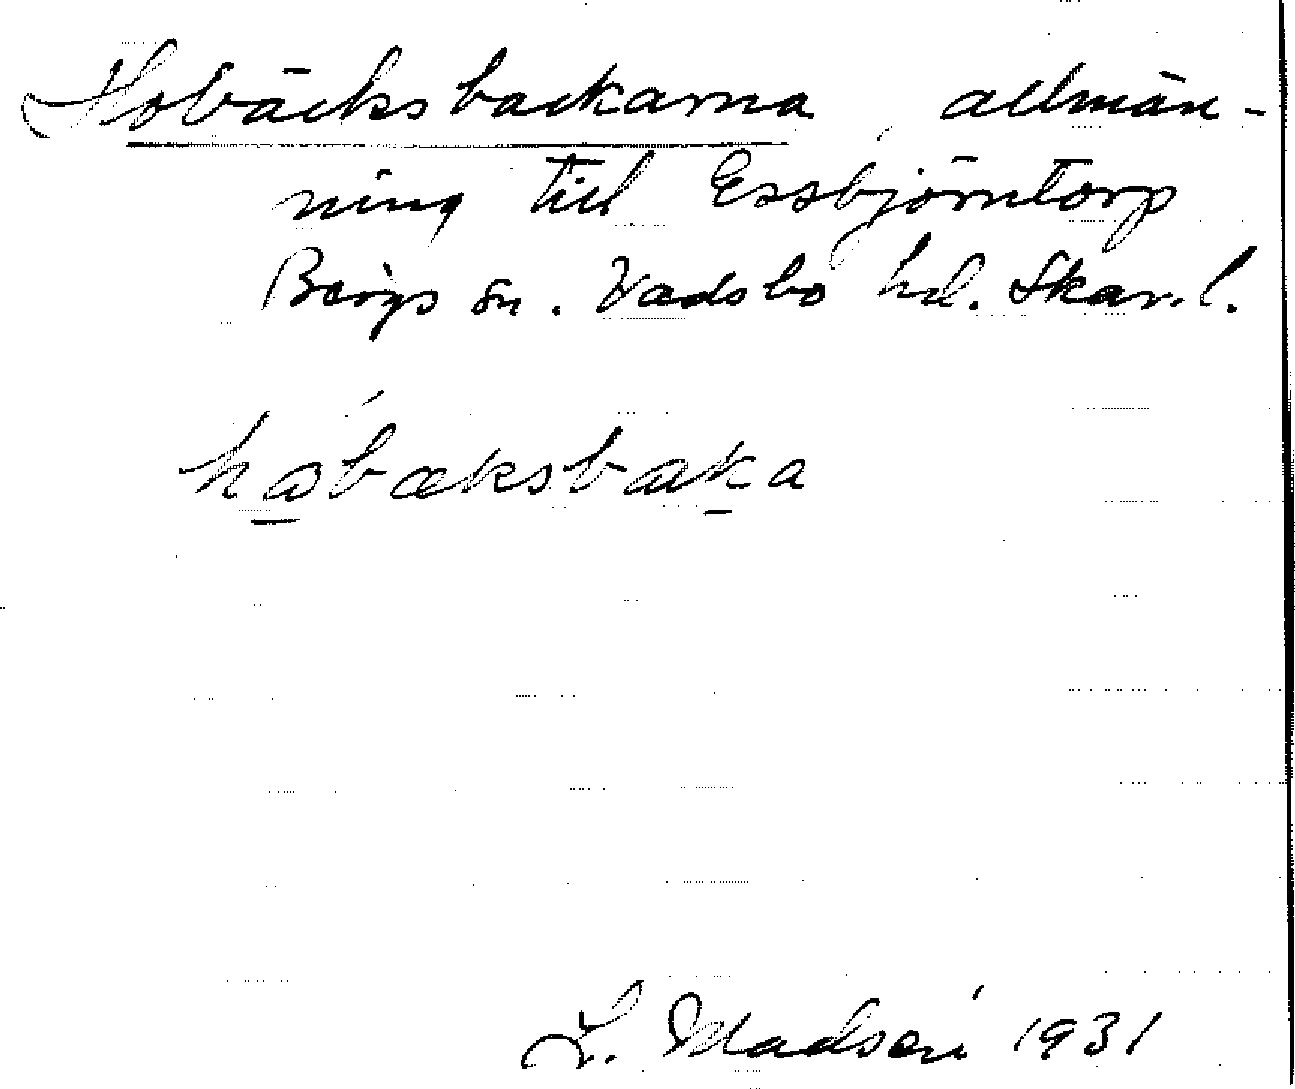 Hobäcksbackarna, allmän-
ning till Essbjörntorp
Bergs sn. Vadsbo hd. Skar.l.
hobæksbaka
L. Madsén 1931